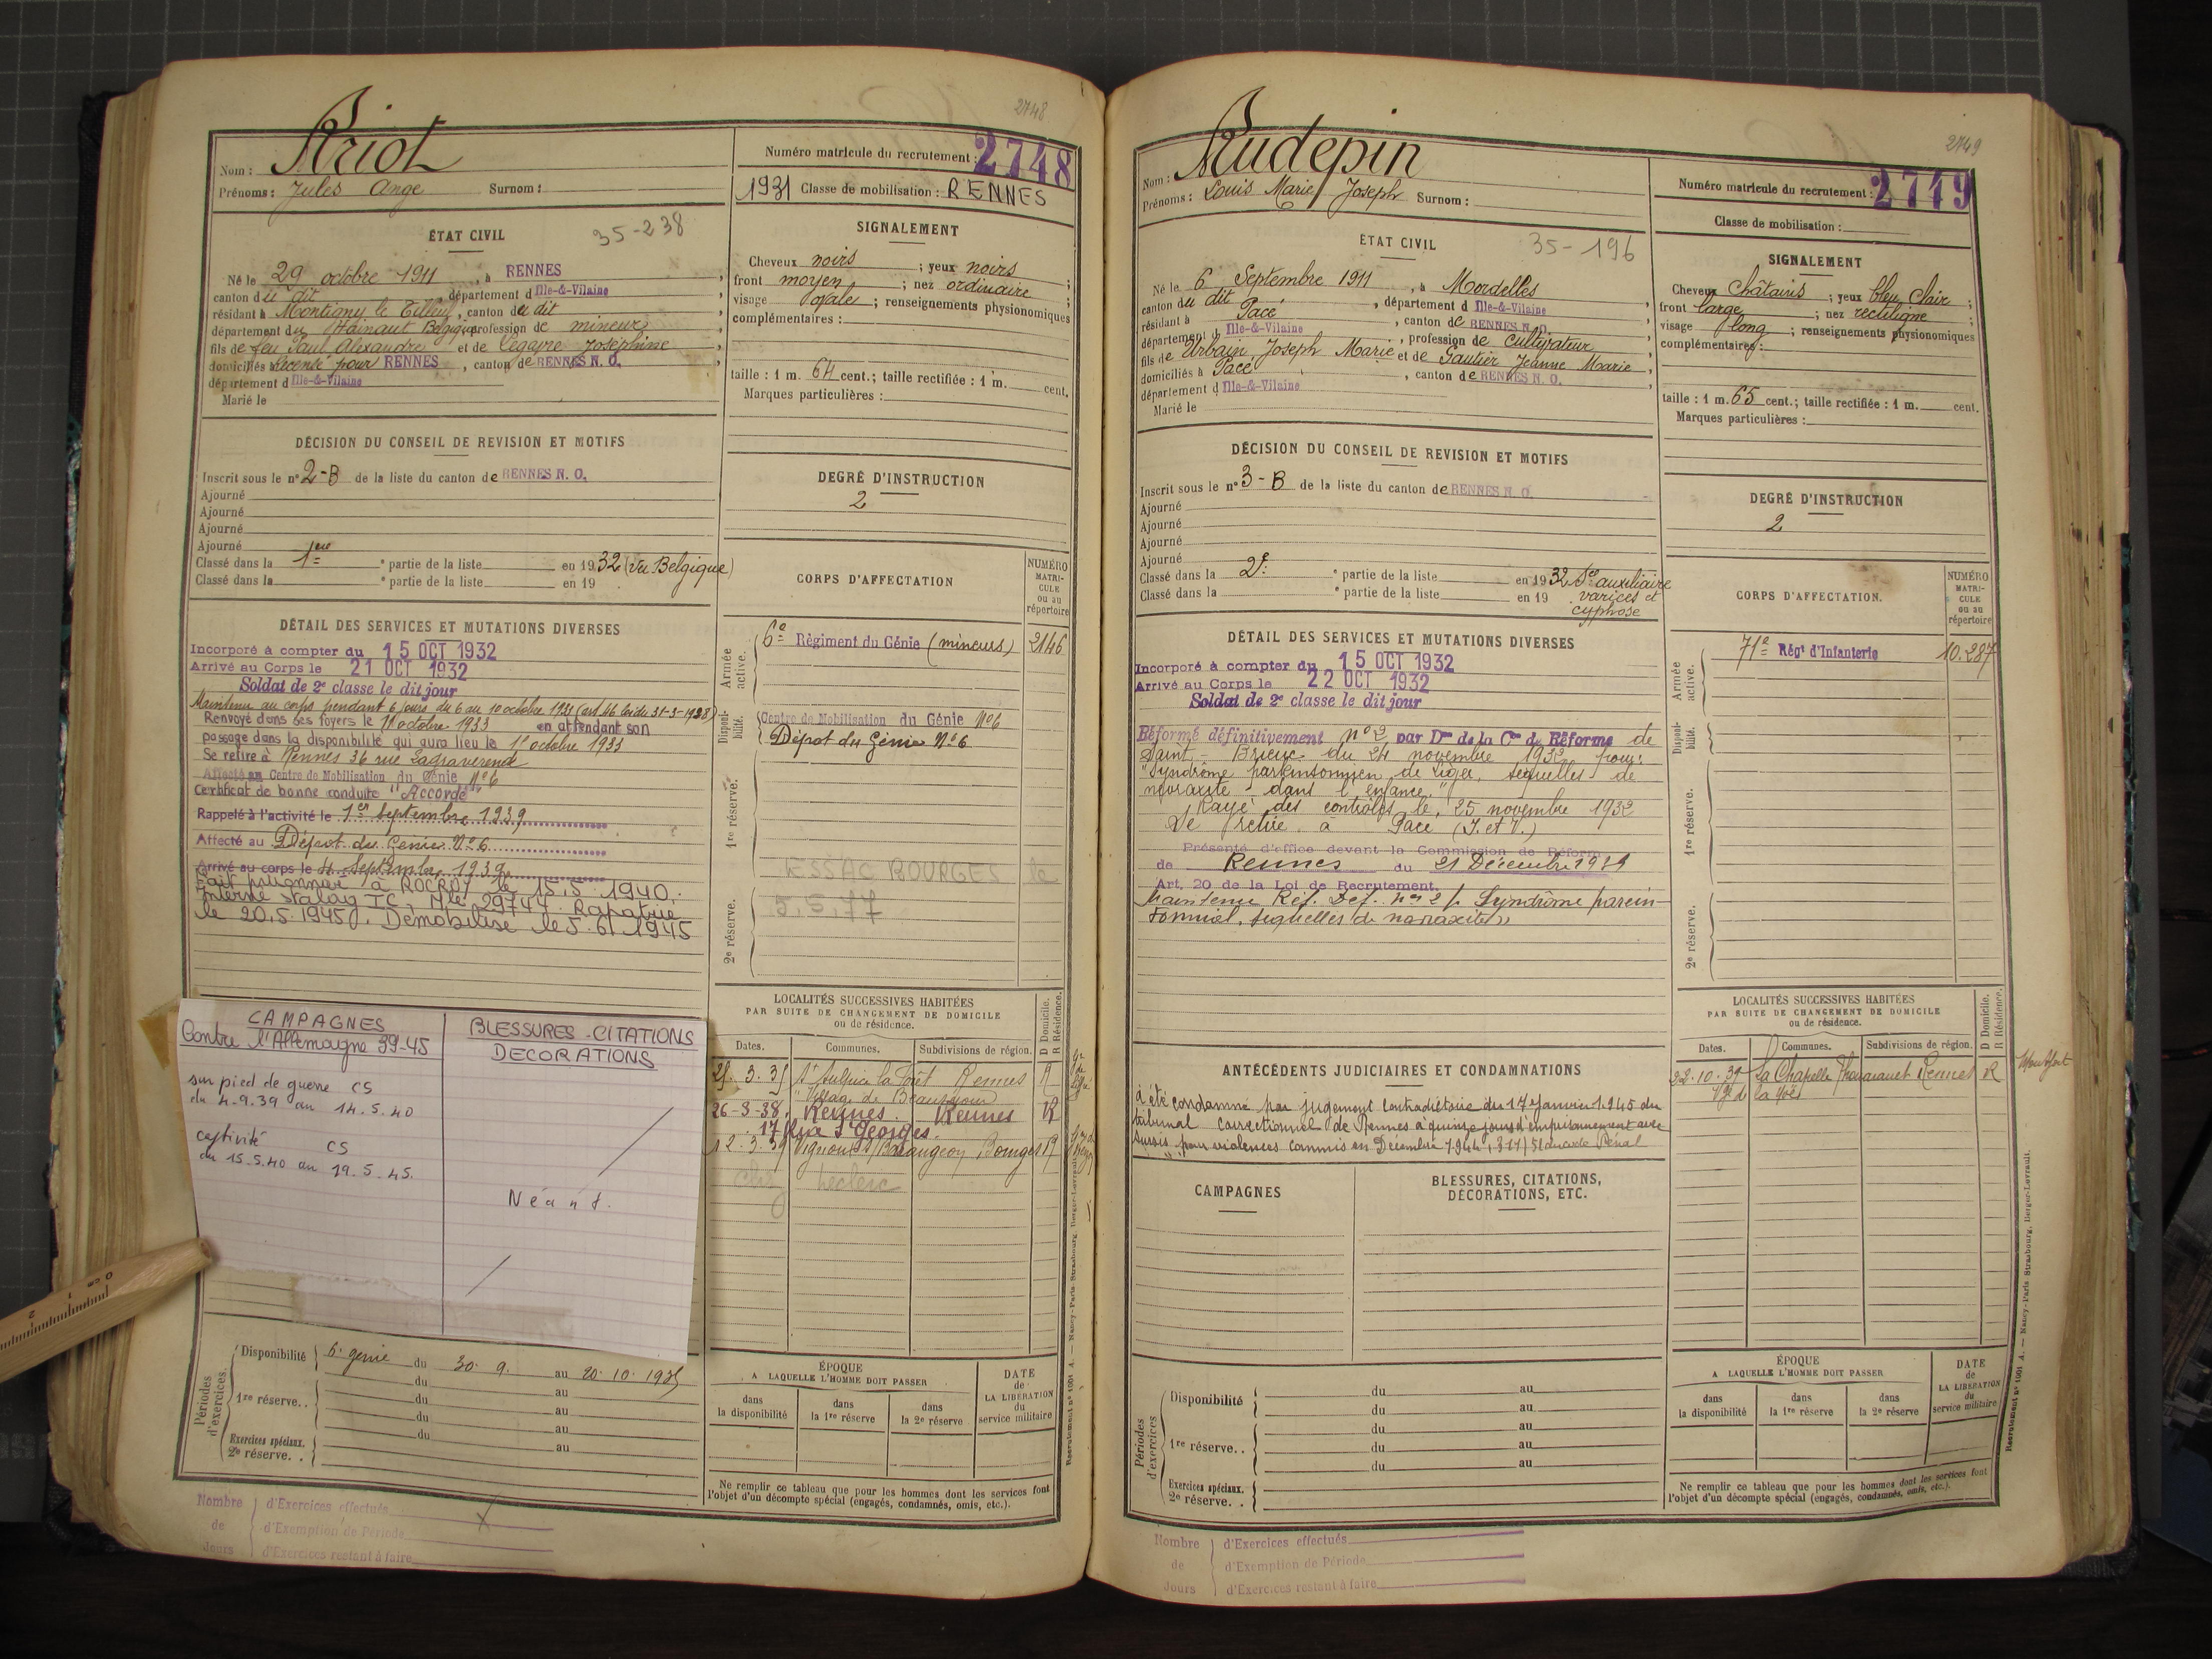 2748
Nom : Riot
Prénoms : Jules Ange Surnom :
Numéro matricule du recrutement : 2748
1931 Classe de mobilisation : RENNES
ÉTAT CIVIL
35-238
Né le 29 octobre 1911, à RENNES
canton du dit département d Ille-&-Vilaine
résidant à Montigny le Tilleul, canton du dit
département du Hainaut Belgique profession de mineur
fils de feu Paul Alexandre et de Legavre Joséphine
domiciliés pour RENNES, canton de RENNES N. O.
département d Ille-&-Vilaine
Marié le
SIGNALEMENT
Cheveux noirs ; yeux noirs
front moyen ; nez ordinaire ;
visage ovale ; renseignements physionomiques
complémentaires :
taille : 1 m. 64 cent.; taille rectifiée : 1 m. cent.
Marques particulières :
DÉCISION DU CONSEIL DE REVISION ET MOTIFS
Inscrit sous le n° 2-B de la liste du canton de RENNES N. O.
Ajourné
Ajourné
Ajourné
Ajourné
Classé dans la 1ère partie de la liste en 1932 (Vu Belgique)
Classé dans la e partie de la liste en 19
DEGRÉ D'INSTRUCTION
2
DÉTAIL DES SERVICES ET MUTATIONS DIVERSES
Incorporé à compter du 15 OCT 1932
Arrivé au Corps le 21 OCT 1932
Soldat de 2e classe le dit jour
Maintenu au corps pendant 6 jours du 6 au 10 octobre 1933 (art 46 loi du 31-3-1928)
Renvoyé dans ses foyers le 11 octobre 1933 en attendant son
passage dans la disponibilité qui aura lieu le 15 octobre 1933
Se retire à Rennes 36 rue Lagraverend
Affecté au Centre de Mobilisation du Génie N°6
Certificat de bonne conduite "Accordé"
Rappelé à l'activité le 1er septembre 1939
Affecté au Dépôt du Génie N°6
Arrivé au corps le 4 Septembre 1939
Fait prisonnier à ROCROY le 15.5.1940.
Interné Stalag IC, Mle 29744. Rapatrié
le 20.5.1945. Démobilisé le 5.6.1945
CORPS D'AFFECTATION
NUMÉRO MATRICULE ou au répertoire
Armée active.
6e Régiment du Génie (mineurs) 2146
Disponibilité.
Centre de Mobilisation du Génie N°6
Dépôt du Génie N°6
1re réserve.
ESSAC BOURGES le
5.5.77
2e réserve.
CAMPAGNES
Contre l'Allemagne 39-45
sur pied de guerre CS
du 4-9.39 au 14.5.40
captivité CS
du 15.5.40 au 19.5.45.
BLESSURES - CITATIONS
DECORATIONS
Néant.
LOCALITÉS SUCCESSIVES HABITÉES
PAR SUITE DE CHANGEMENT DE DOMICILE
ou de résidence.
D Domicile.
R Résidence.
Dates. Communes. Subdivisions de région.
25.3.35 St Sulpice la Forêt Rennes R
Village de
26-3-38. Rennes. Rennes R
17 Rue St Georges.
12.3.39 Vignoux s/ Barangeon Bourges R
chez Leclerc
Périodes d'exercices.
Disponibilité 6e génie du 30.9. au 20.10.1935
du au
1re réserve.. du au
du au
Exercices spéciaux. du au
2e réserve. .
ÉPOQUE
A LAQUELLE L'HOMME DOIT PASSER
dans la disponibilité
dans la 1re réserve
dans la 2e réserve
DATE de LA LIBÉRATION du service militaire
Ne remplir ce tableau que pour les hommes dont les services font
l'objet d'un décompte spécial (engagés, condamnés, omis, etc.).
Recrutement n° 1001 A. — Nancy-Paris-Strasbourg, Berger-Levrault.
Nombre de Jours
d'Exercices effectués
d'Exemption de Période
d'Exercices restant à faire
2749
Nom : Rudepin
Prénoms : Louis Marie Joseph Surnom :
Numéro matricule du recrutement : 2749
Classe de mobilisation :
ÉTAT CIVIL
35-196
Né le 6 Septembre 1911, à Mordelles
canton du dit, département d Ille-&-Vilaine
résidant à Pacé, canton de RENNES N. O.
département d Ille-&-Vilaine, profession de cultivateur
fils de Urbain Joseph Marie et de Gautier Jeanne Marie
domiciliés à Pacé, canton de RENNES N. O.
département d Ille-&-Vilaine
Marié le
SIGNALEMENT
Cheveux châtains ; yeux bleu clair ;
front large ; nez rectiligne ;
visage long ; renseignements physionomiques
complémentaires :
taille : 1 m. 65 cent.; taille rectifiée : 1 m. cent.
Marques particulières :
DÉCISION DU CONSEIL DE REVISION ET MOTIFS
Inscrit sous le n° 3-B de la liste du canton de RENNES N. O.
Ajourné
Ajourné
Ajourné
Ajourné
Classé dans la 2e partie de la liste en 1932 Sce auxiliaire
Classé dans la e partie de la liste en 19 varices et
cyphose
DEGRÉ D'INSTRUCTION
2
DÉTAIL DES SERVICES ET MUTATIONS DIVERSES
Incorporé à compter du 15 OCT 1932
Arrivé au Corps le 22 OCT 1932
Soldat de 2e classe le dit jour
Réformé définitivement n°2 par Don de la Con de Réforme de
Saint-Brieuc du 24 novembre 1932 pour:
"Syndrôme parkinsonnien de léger, séquelles de
névraxite dans l'enfance."
Rayé des contrôles le 25 novembre 1932
Se retire à Pacé (I. et V.)
Présenté d'office devant la Commission de Réforme
de Rennes du 21 Décembre 1939
Art. 20 de la Loi de Recrutement.
Maintenu Réf. Def. n° 2 p. Syndrôme parkin-
sonnien, séquelles de névraxite
CORPS D'AFFECTATION.
NUMÉRO MATRICULE ou au répertoire
Armée active.
71e Régt d'Infanterie 10.287
Disponibilité.
1re réserve.
2e réserve.
ANTÉCÉDENTS JUDICIAIRES ET CONDAMNATIONS
A été condamné par jugement contradictoire du 17 Janvier 1945 du
tribunal correctionnel de Rennes à quinze jours d'emprisonnement avec
sursis pour violences commis en Décembre 1944, 311 du code Pénal
CAMPAGNES
BLESSURES, CITATIONS,
DÉCORATIONS, ETC.
LOCALITÉS SUCCESSIVES HABITÉES
PAR SUITE DE CHANGEMENT DE DOMICILE
ou de résidence.
D Domicile.
R Résidence.
Dates. Communes. Subdivisions de région.
22.10.37 La Chapelle Thouarault Rennes R
Montfort
Périodes d'exercices
Disponibilité du au
du au
1re réserve.. du au
du au
du au
Exercices spéciaux.
2e réserve. .
ÉPOQUE
A LAQUELLE L'HOMME DOIT PASSER
dans la disponibilité
dans la 1re réserve
dans la 2e réserve
DATE de LA LIBÉRATION du service militaire
Ne remplir ce tableau que pour les hommes dont les services font
l'objet d'un décompte spécial (engagés, condamnés, omis, etc.).
Recrutement n° 1001 A. — Nancy-Paris-Strasbourg, Berger-Levrault.
Nombre de Jours
d'Exercices effectués
d'Exemption de Période
d'Exercices restant à faire